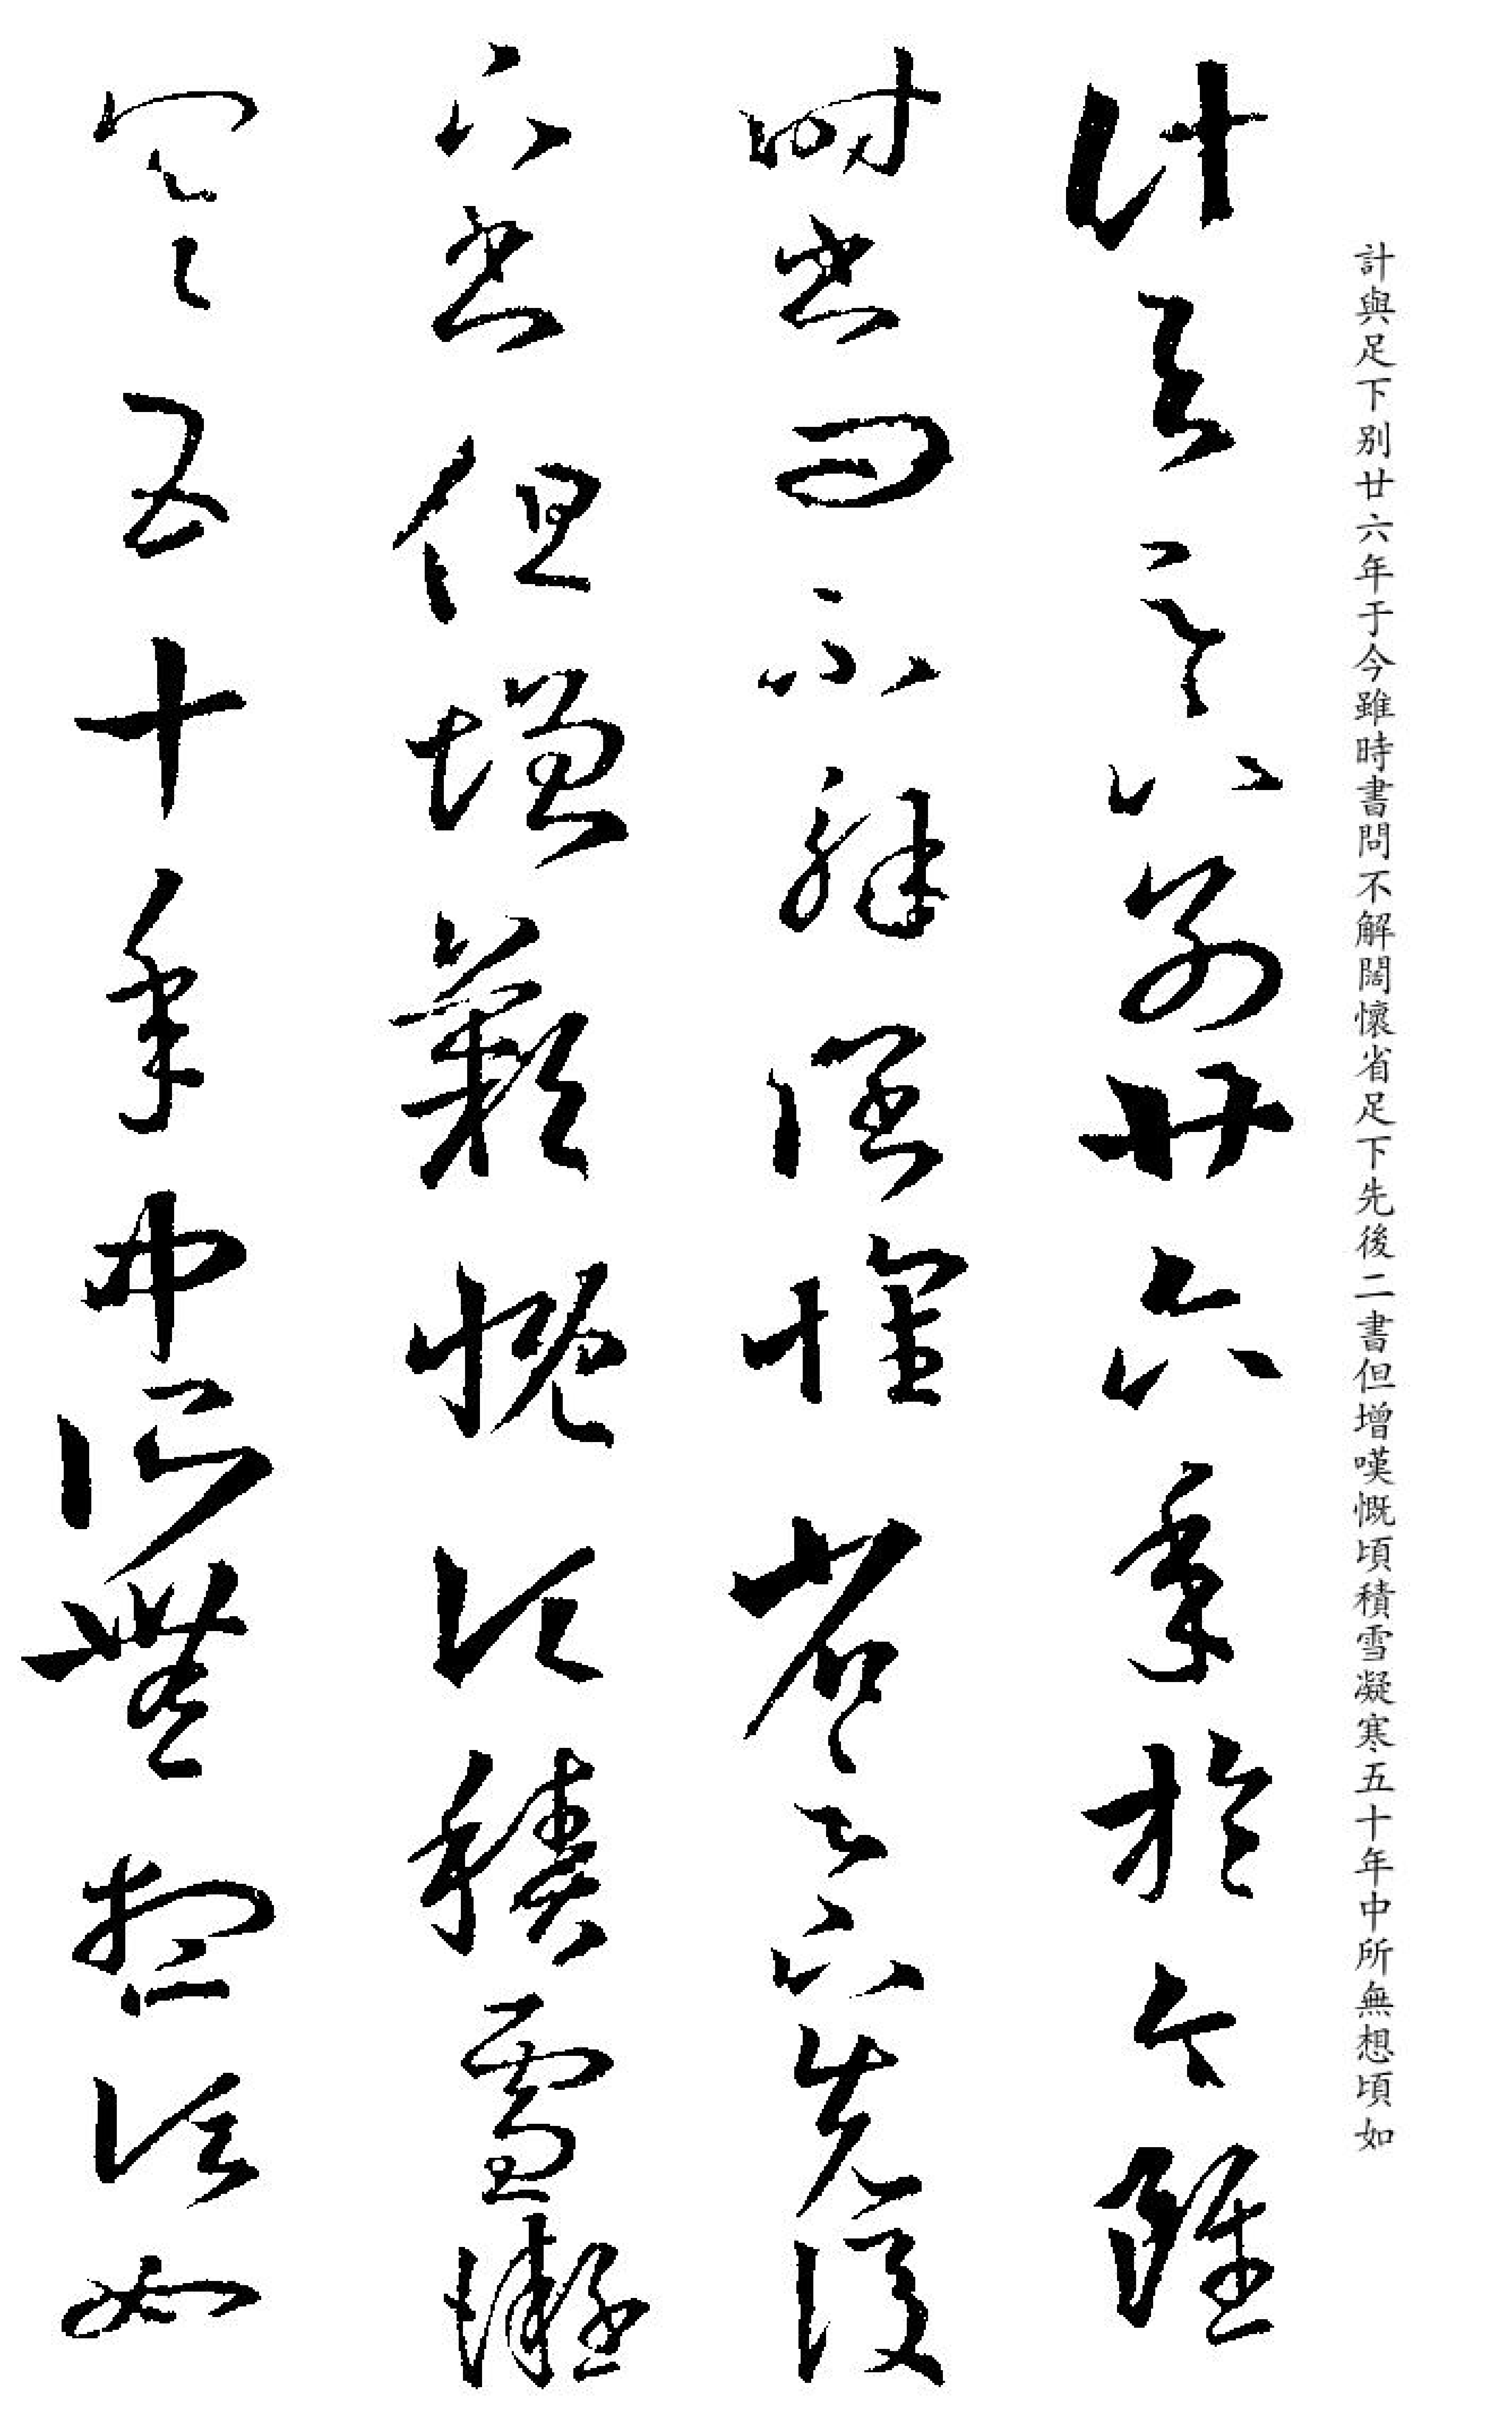 計與足下別廿六年于今雖時書問不解闊懷省足下先後二書但增嘆慨頃積雪凝寒五十年中所無想頃如
計與足下別廿六年於今雖
時書問不解闊懷省足下先後
二書但增歎慨頃積雪凝
寒五十年中所無想頃如